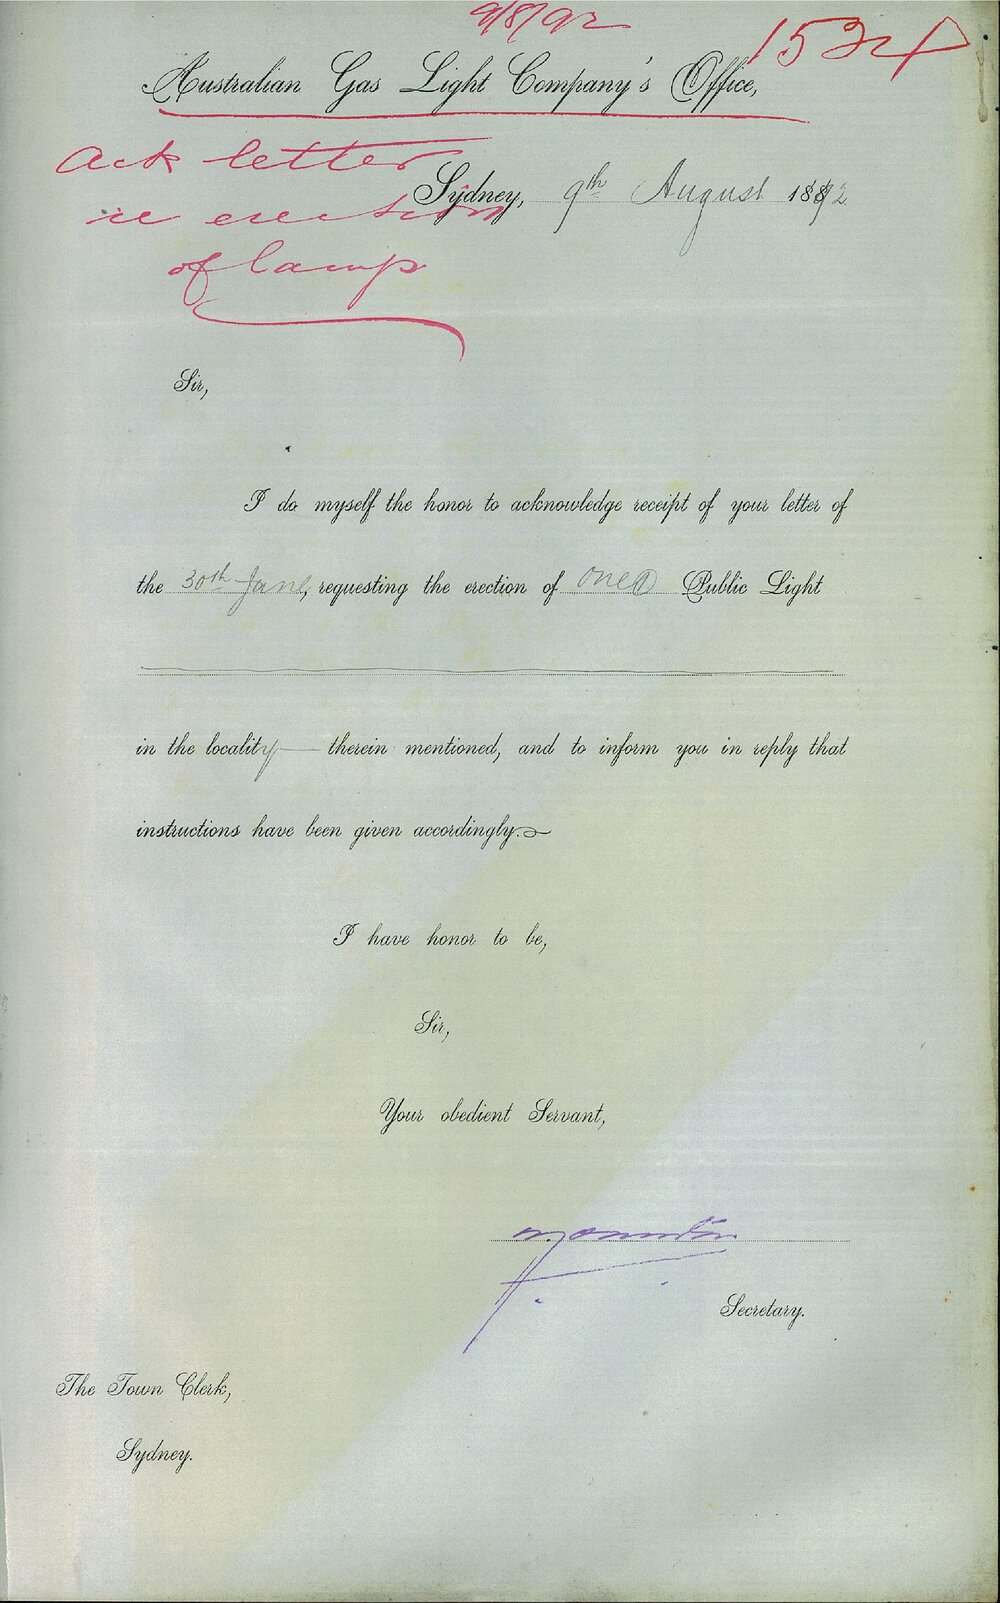 9/8/92
1534
Australian Gas Light Company's Office,
Ack letter
re erection
of lamp
Sydney, 9th August 1892
Sir,
I do myself the honor to acknowledge receipt of your letter of
the 30th June, requesting the erection of one (1) Public Light
in the locality therein mentioned, and to inform you in reply that
instructions have been given accordingly.
I have honor to be,
Sir,
Your obedient Servant,
Secretary.
The Town Clerk,
Sydney.